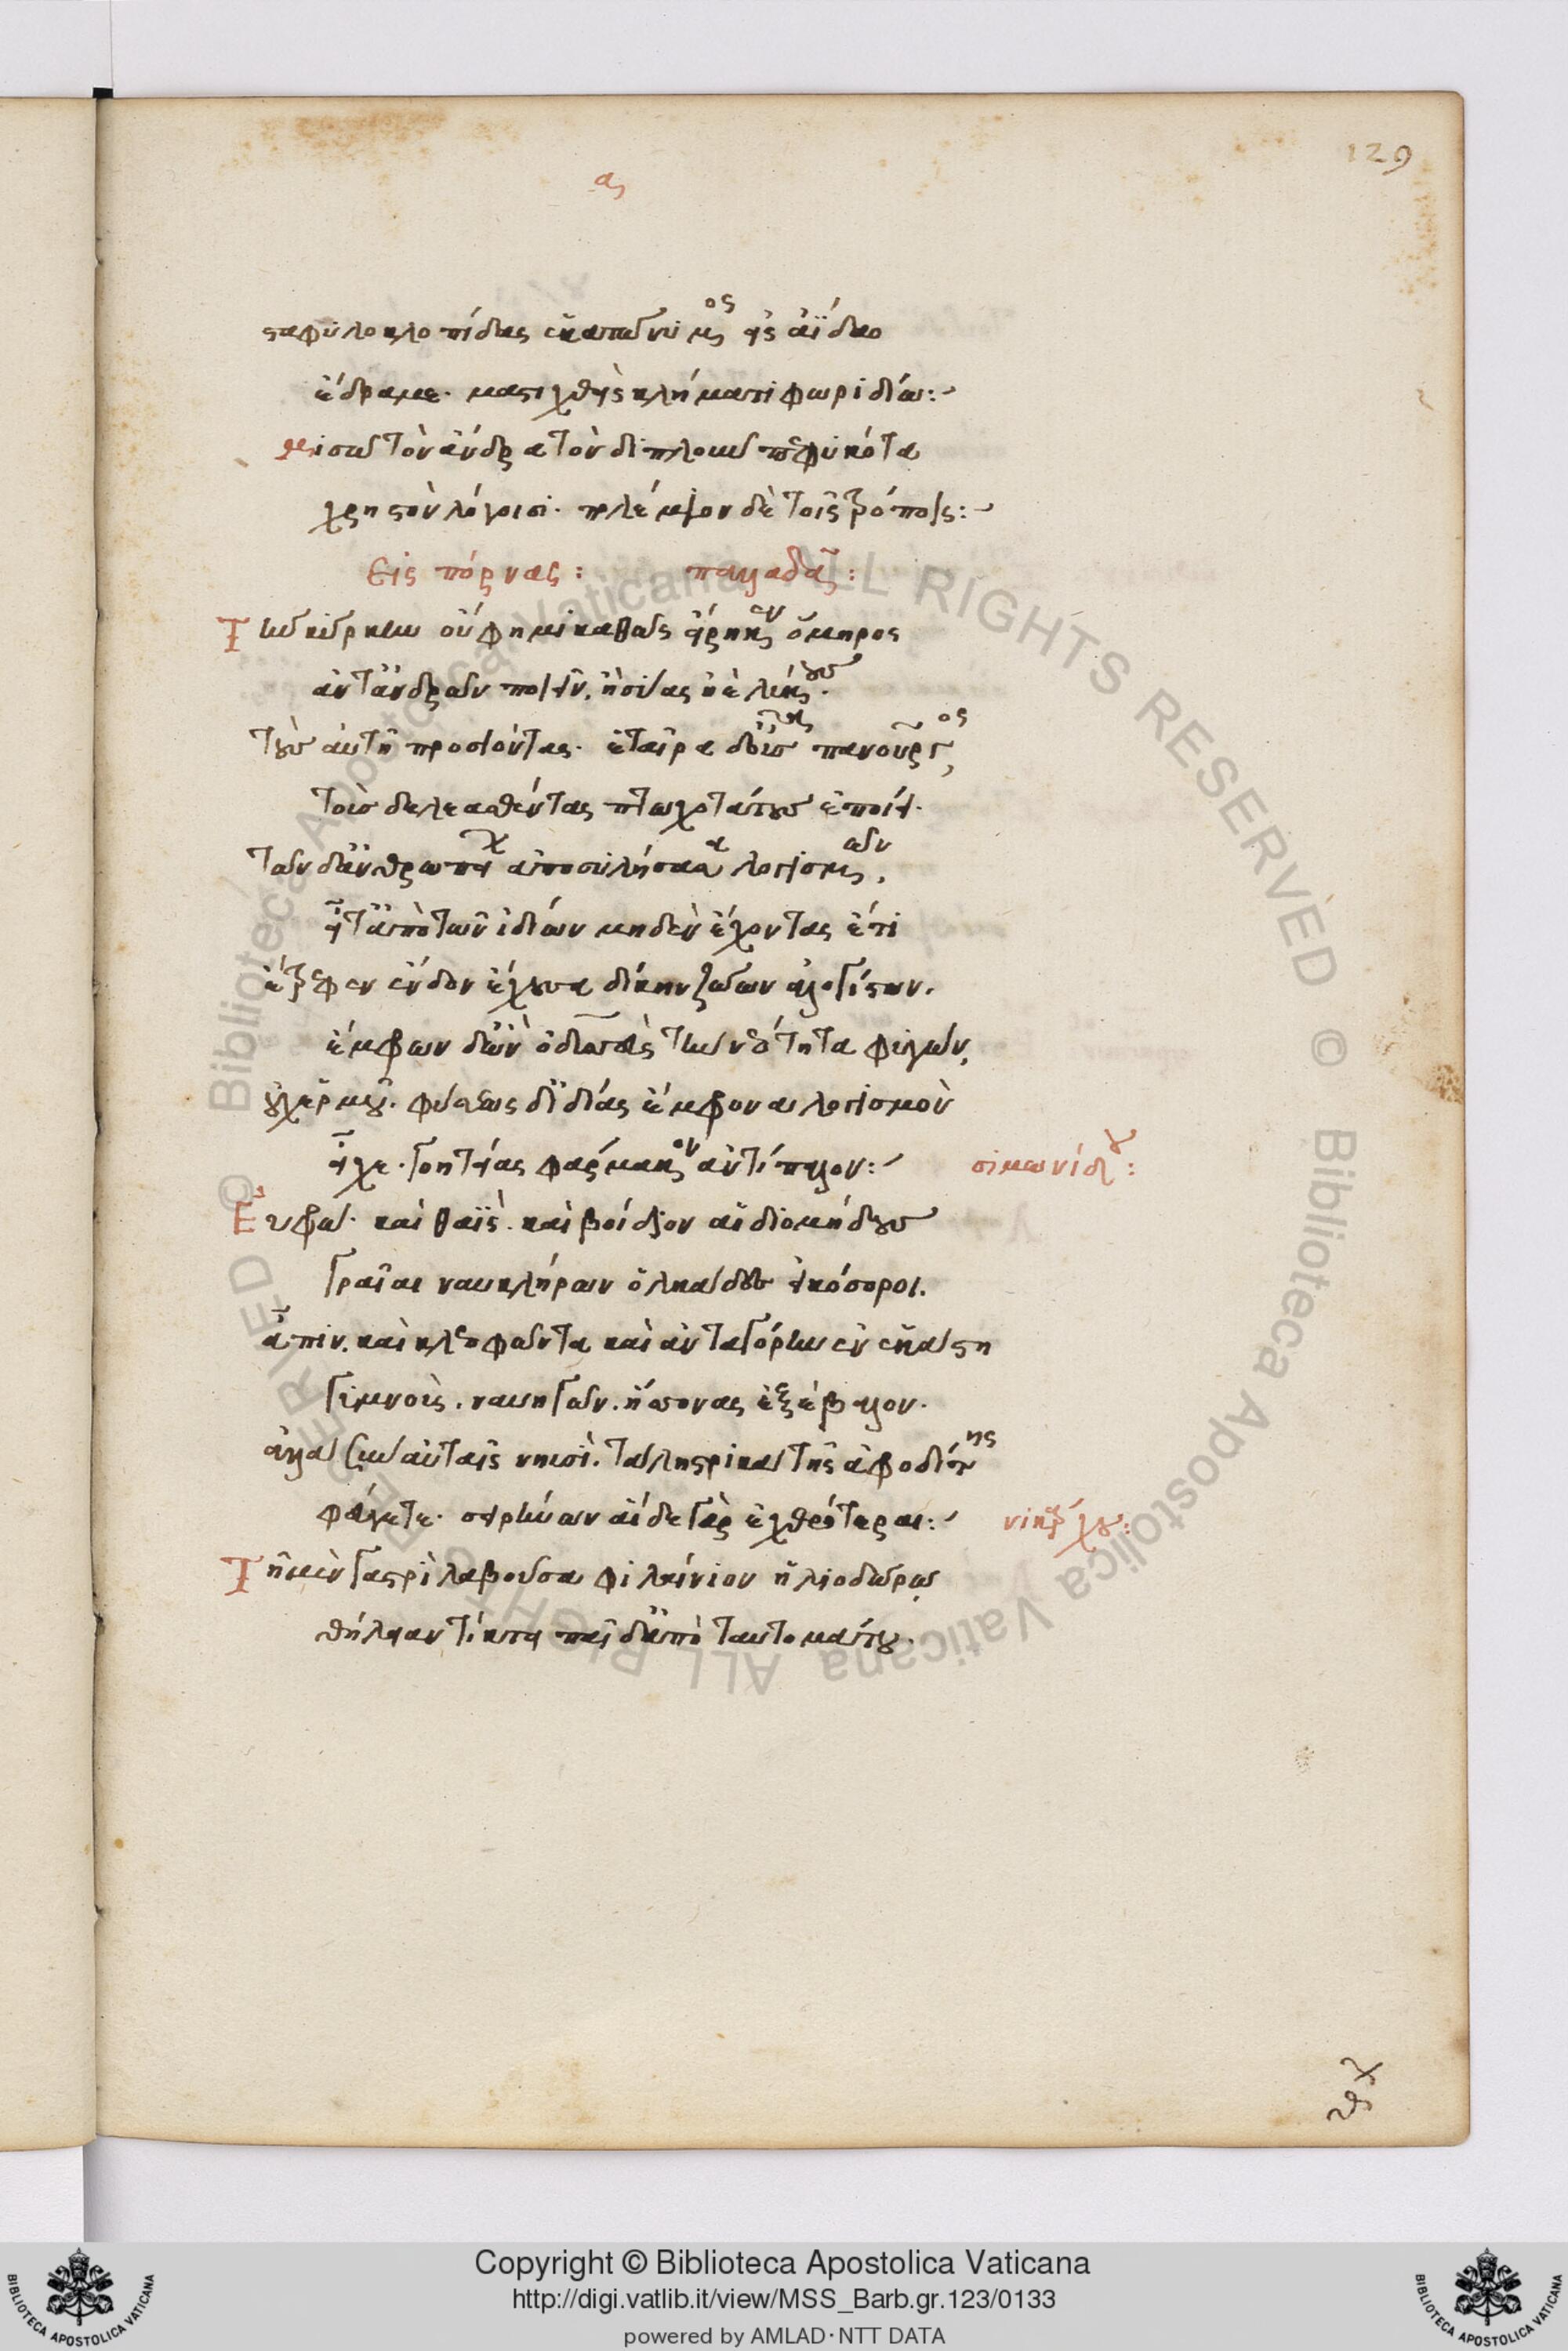 129
α
σταφυλοκλοπίδας ἑκατώνυμος εἰς ἀΐδαο
ἔδραμε· μαστιχθεὶς κλήματι φωριδίω:
μισῶ τὸν ἄνδρα τὸν διπλοῦν πεφυκότα
χρηστὸν λόγοισι· πολέμιον δὲ τοῖς τρόποις:
Εἰς πόρνας: παλλαδᾶ:
Τὴν κίρκην οὔ φημι καθὼς εἴρηκεν ὅμηρος
ἀντἀνδρῶν ποιεῖν. ἢ σύας ἠὲ λύκους.
τοὺς αὐτῇ προσιόντας· ἑταῖρα δ' οὖσα πανοῦργος
τοὺς δελεασθέντας πτωχοτάτους ἐποίει·
τῶν δ' ἀνθρωπείων ἀποσυλήσασα λογισμῶν,
εἶτ' ἀπὸ τῶν ἰδίων μηδὲν ἔχοντας ἔτι
ἔτρεφεν ἔνδον ἔχουσα δίκην ζώων ἀλογίστων.
ἔμφρων δ' ὢν ὀδυσσεὺς τὴν νεότητα φυγών,
οὐχ ἑρμοῦ. φύσεως δ' ἰδίας ἔμφρονα λογισμὸν
εἶχε· γοητείας φάρμακον ἀντίπαλον: σιμωνίδου:
Εὐφρὼ· καὶ θαῒς. καὶ βοίδιον αἱ διομήδους
γραῖαι ναυκλήρων ὁλκάδες εἰκόσοροι.
ἆπιν. καὶ κλεοφῶντα καὶ ἀνταγόρην ἓν ἑκάστη
γυμνοὺς. ναυηγῶν. ἥσσονας ἐξέβαλον.
ἀλλὰ σὺν αὐταῖς νηυσὶ. τὰ ληστρικὰ τῆς ἀφροδίτης
φεύγετε· σειρήνων αἵδε γὰρ ἐχθρότεραι: νικάρχου:
Τῇ μὲν γαστρὶ λαβοῦσα φιλαίνιον ἡλιοδώρω
θήλειαν τίκτει παῖδ' ἀπὸ ταυτομάτου.
Copyright © Biblioteca Apostolica Vaticana
http://digi.vatlib.it/view/MSS_Barb.gr.123/0133
powered by AMLAD·NTT DATA
BIBLIOTECA APOSTOLICA VATICANA
BIBLIOTECA APOSTOLICA VATICANA
© Biblioteca Apostolica Vaticana ALL RIGHTS RESERVED © Biblioteca Apostolica Vaticana ALL RIGHTS RESERVED